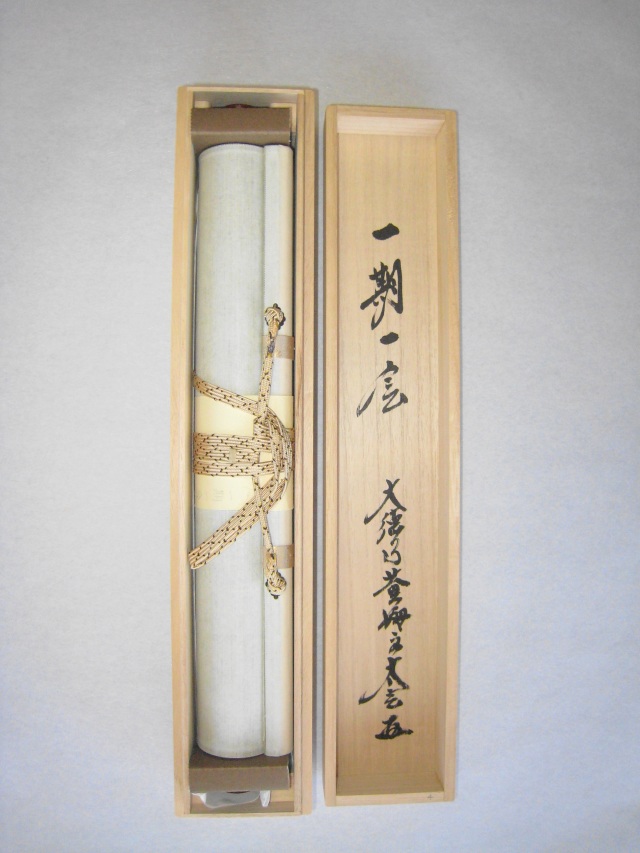 一期一会
大徳寺黄梅主太玄